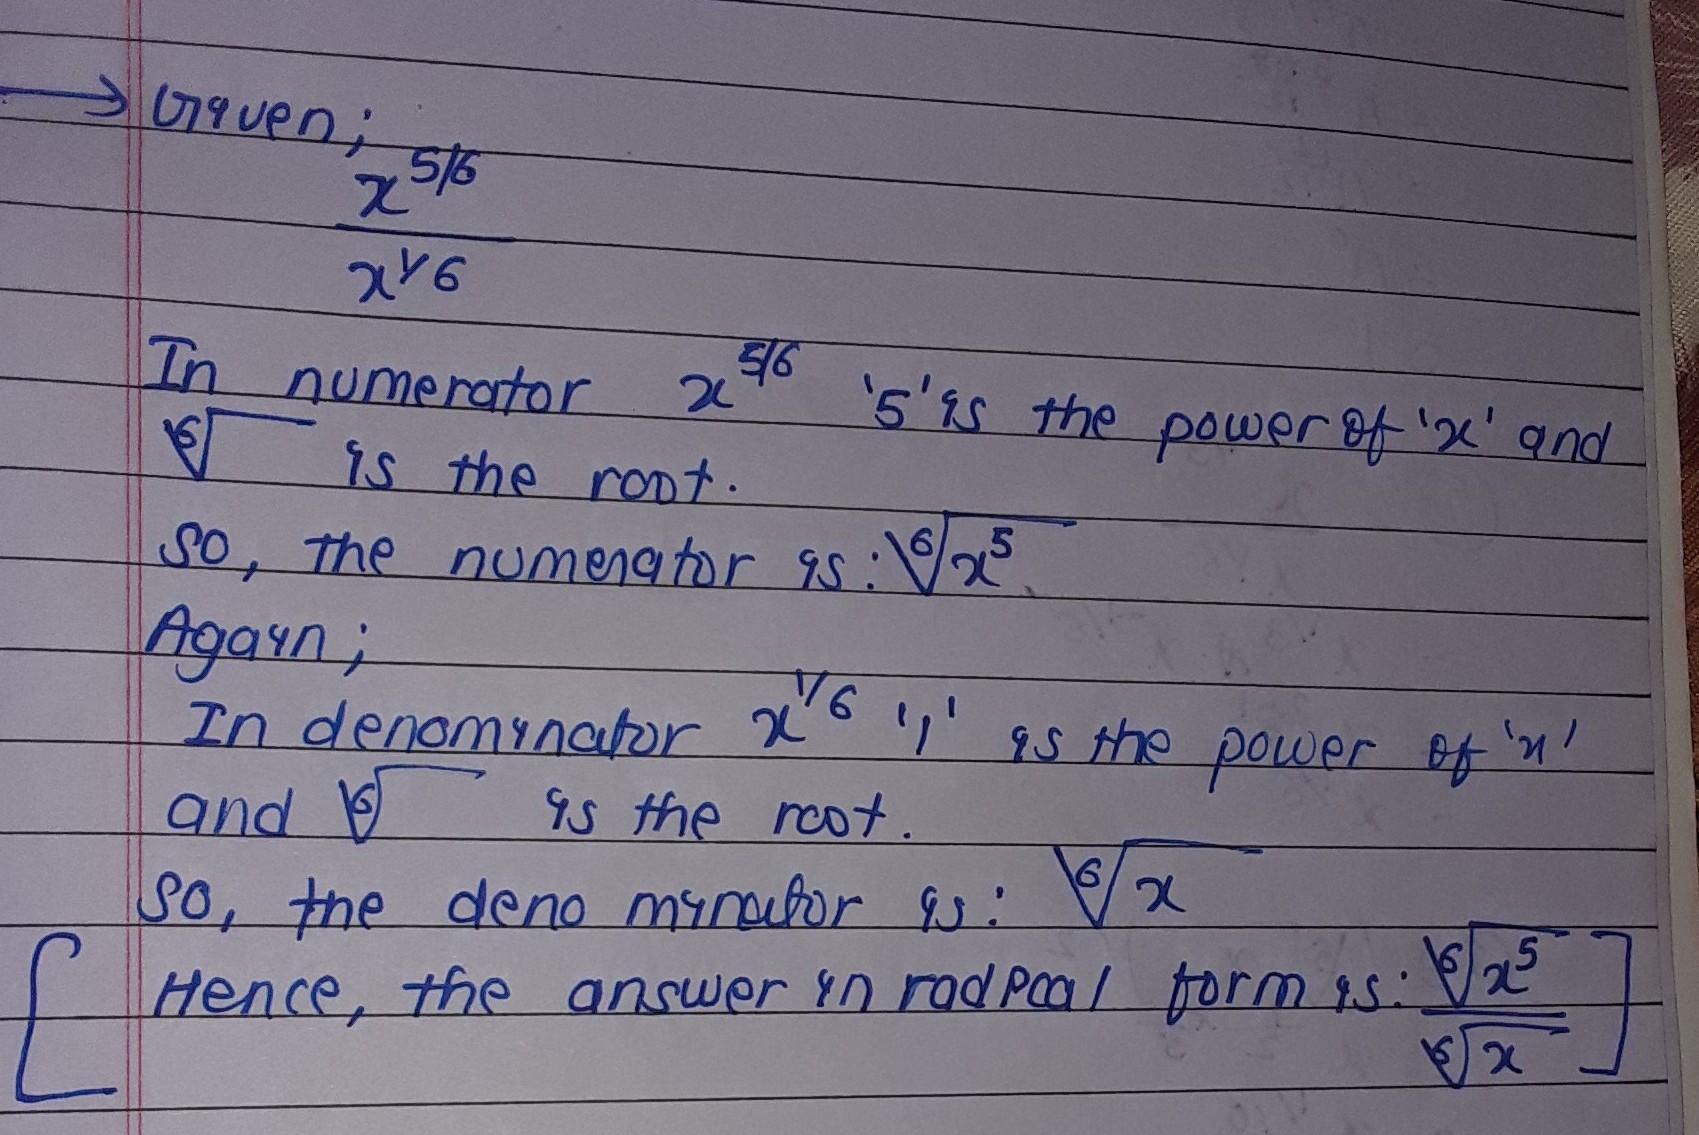 → Given;
x^5/6
x^1/6
In numerator x^5/6 '5' is the power of 'x' and
⁶√ is the root.
so, the numerator is: ⁶√x^5
Again;
In denominator x^1/6 '1' is the power of 'x'
and ⁶√ is the root.
so, the denominator is: ⁶√x
Hence, the answer in radical form is: ⁶√x^5
⁶√x